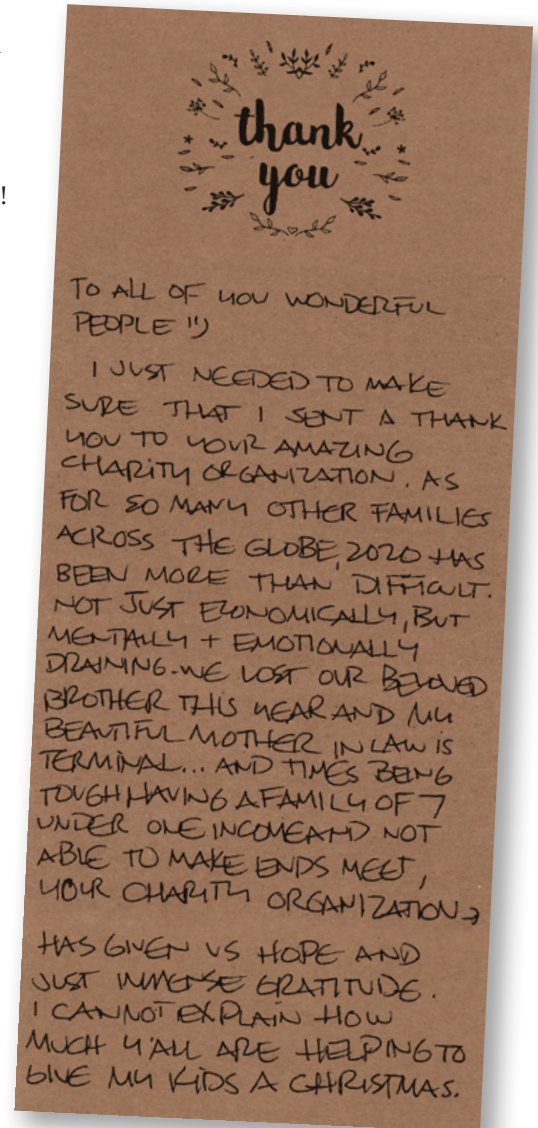 !
thank
you
TO ALL OF YOU WONDERFUL
PEOPLE ")
I JUST NEEDED TO MAKE
SURE THAT I SENT A THANK
YOU TO YOUR AMAZING
CHARITY ORGANIZATION. AS
FOR SO MANY OTHER FAMILIES
ACROSS THE GLOBE, 2020 HAS
BEEN MORE THAN DIFFICULT.
NOT JUST ECONOMICALLY, BUT
MENTALLY + EMOTIONALLY
DRAINING. WE LOST OUR BELOVED
BROTHER THIS YEAR AND MY
BEAUTIFUL MOTHER IN LAW IS
TERMINAL... AND TIMES BEING
TOUGH HAVING A FAMILY OF 7
UNDER ONE INCOME AND NOT
ABLE TO MAKE ENDS MEET,
YOUR CHARITY ORGANIZATION →
HAS GIVEN US HOPE AND
JUST IMMENSE GRATITUDE.
I CANNOT EXPLAIN HOW
MUCH Y'ALL ARE HELPING TO
GIVE MY KIDS A CHRISTMAS.